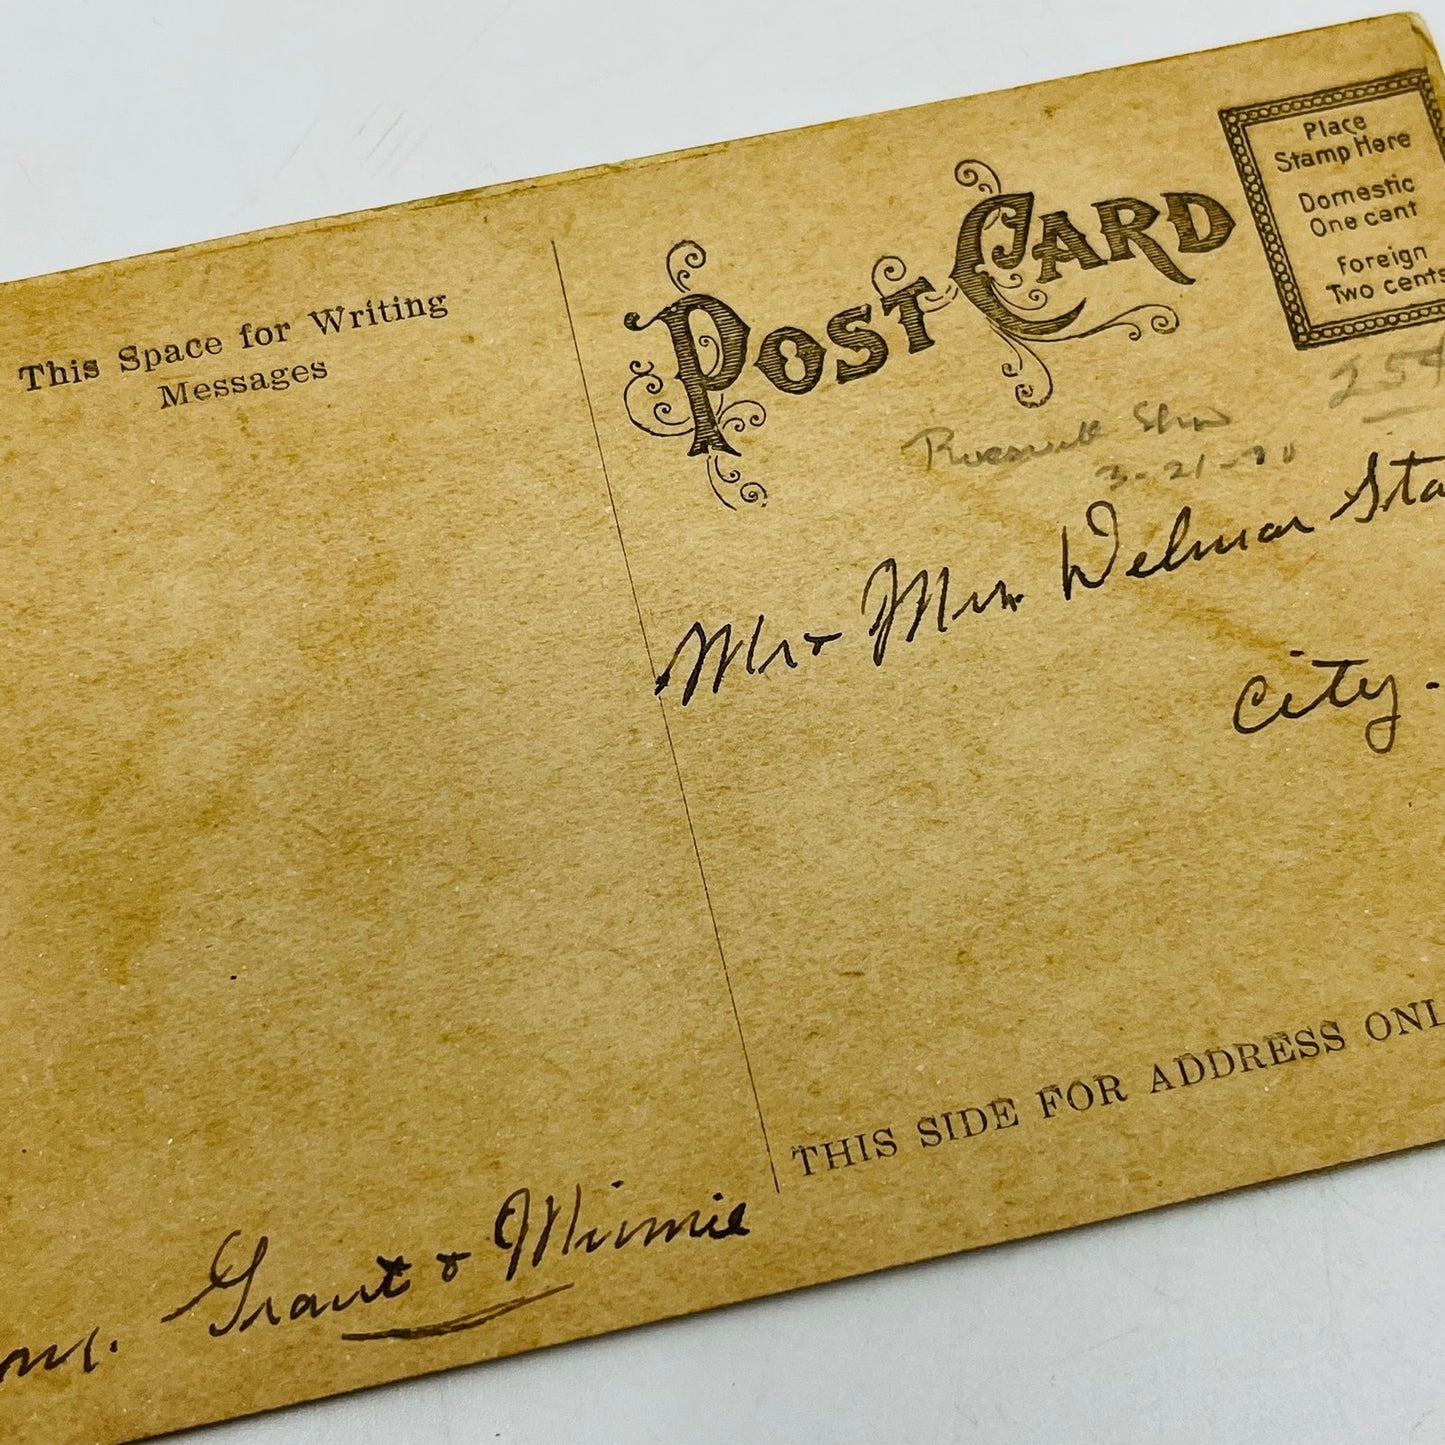 This Space for Writing
Messages
POST CARD
Place
Stamp Here
Domestic
One cent
Foreign
Two cents
25¢
Show
3-21-90
Mr & Mrs. Delmar Sta
City.
THIS SIDE FOR ADDRESS ONL
Grant & Minnie